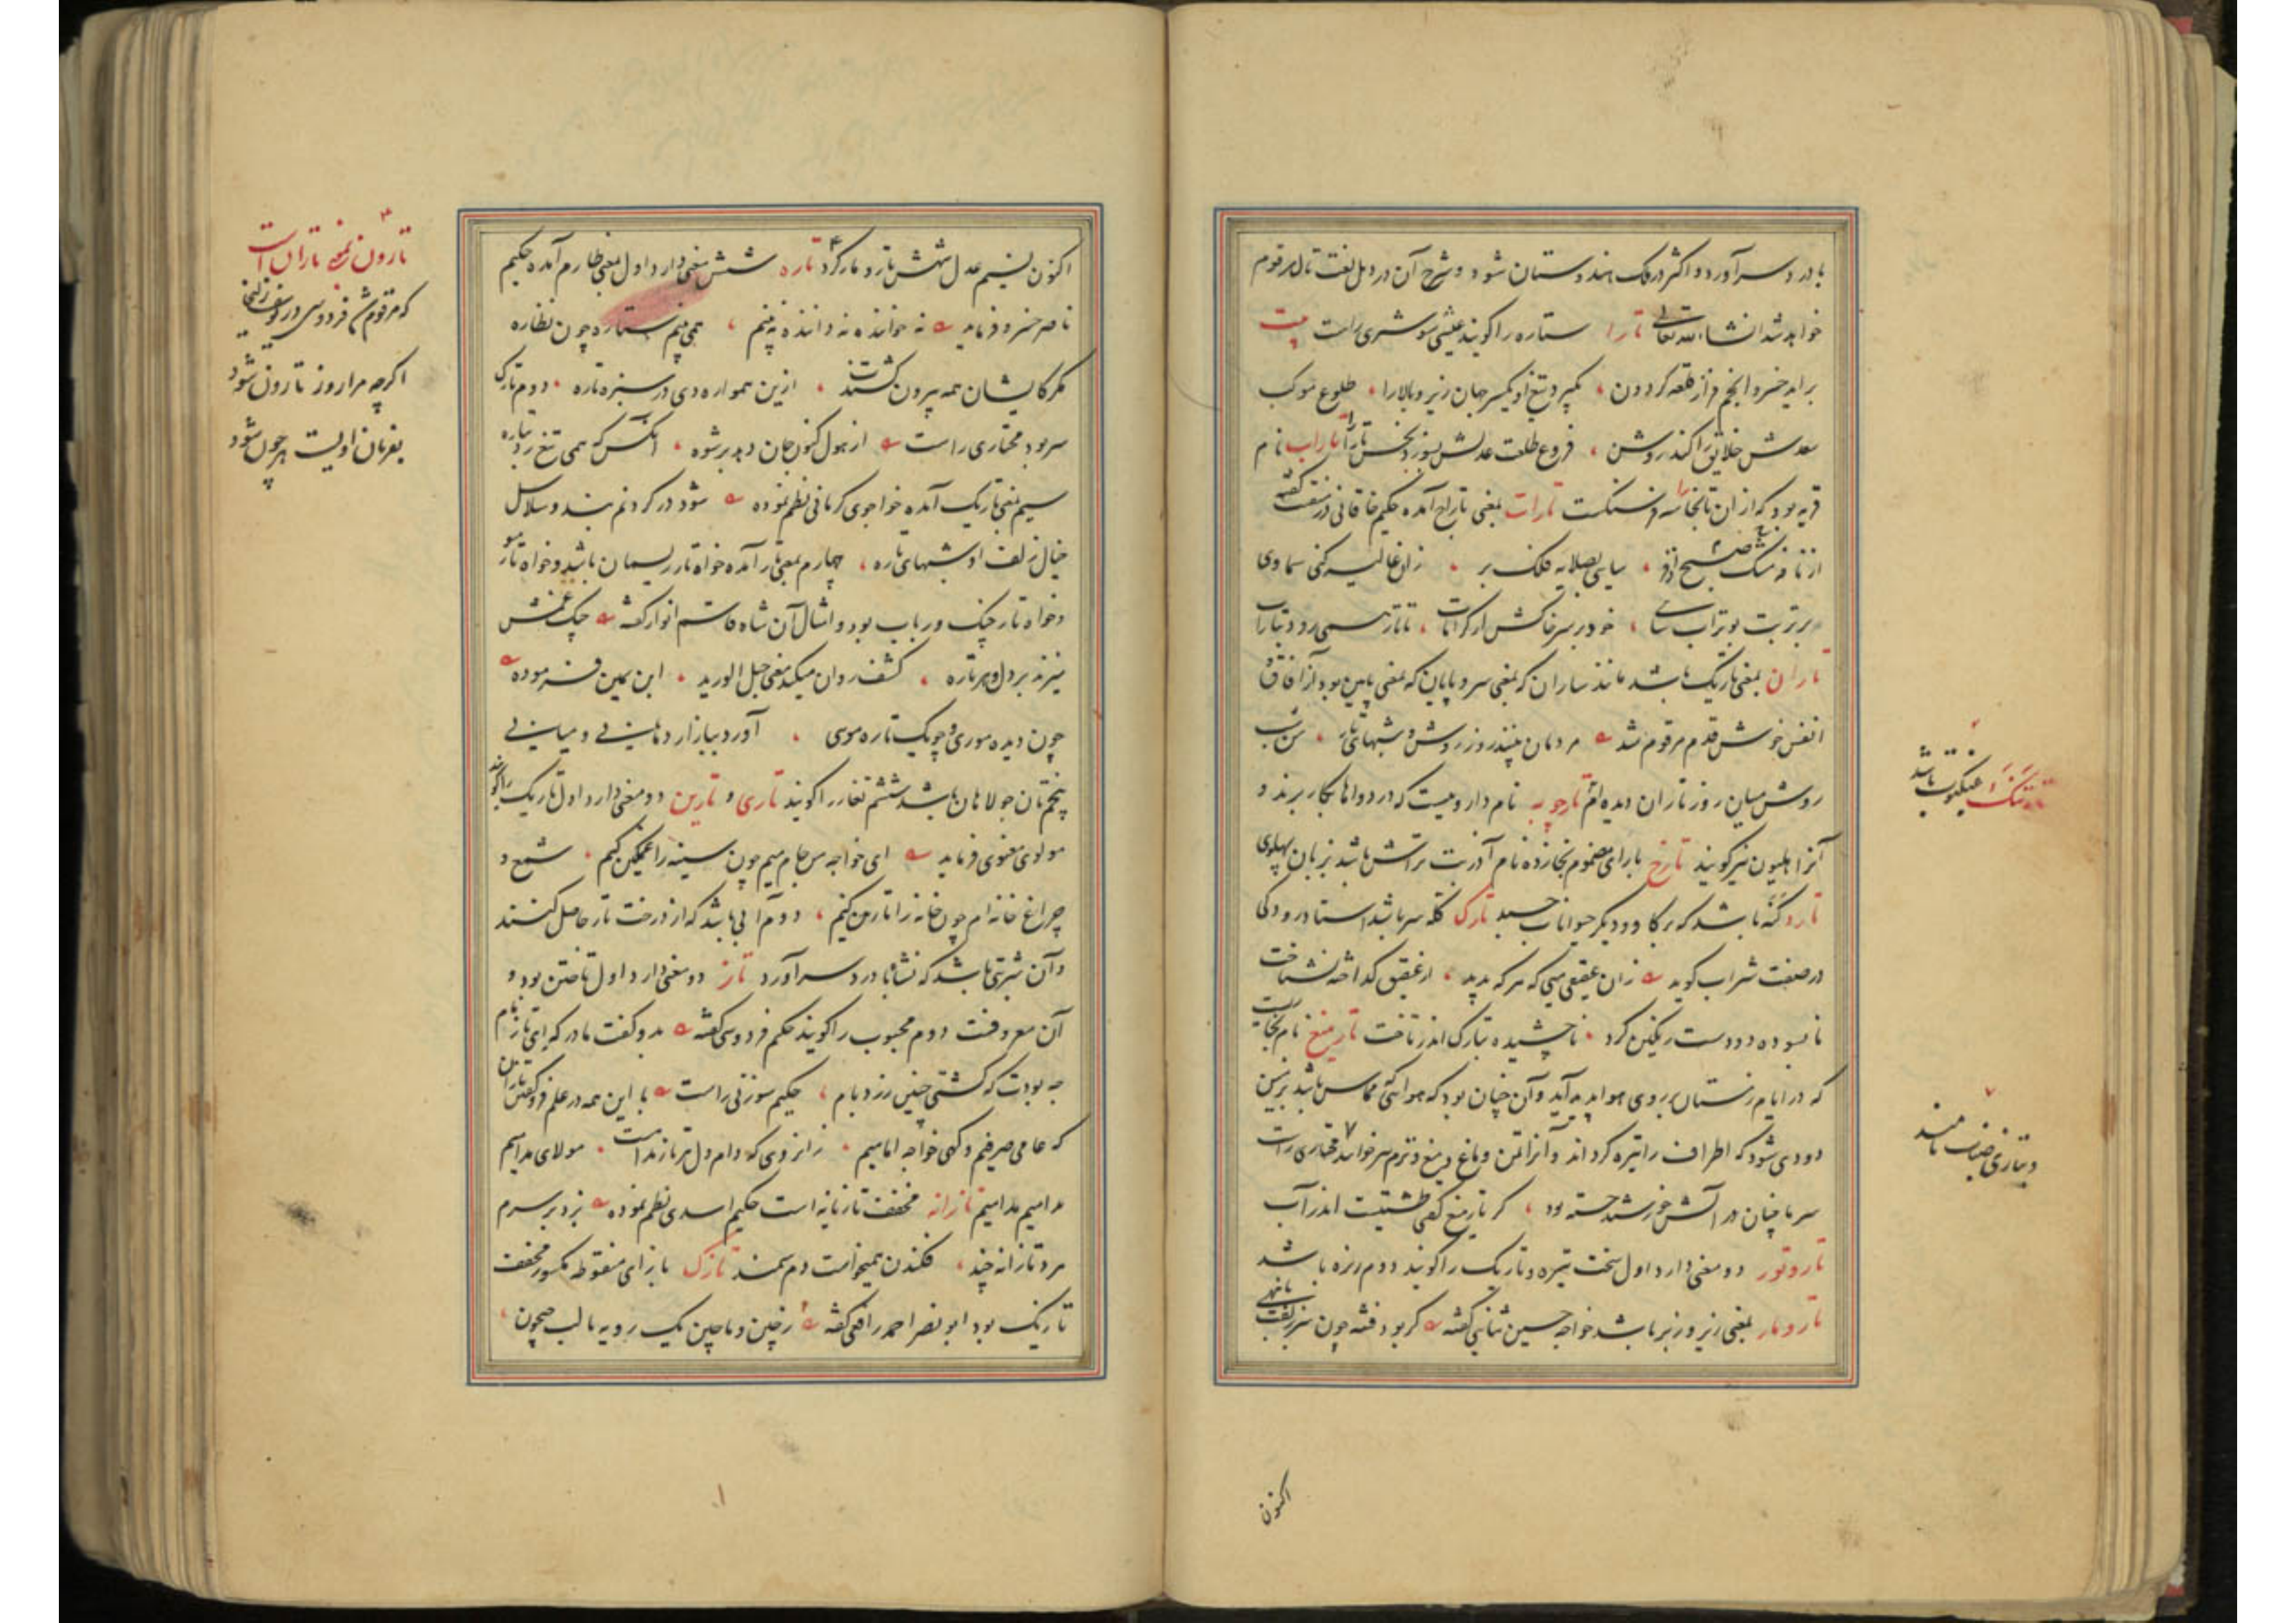 باد در سر آورد و اکثر در ملک هندوستان شود و شرح آن در ذیل لغت تال مرقوم
خواهد شد انشاءالله تعالی تارا ستاره را گویند عیشی شوشتری راست بیت
برآید خسرو انجم فراز قلعه گردون بگیرد تیغ او یکسر جهان زیر و بالا را طلوع موکب
سعدش خلایق را کند روشن فروغ طلعت عدلش بسوزد نحس تارا تاراب نام
قریه بود که از آن تا بخارا سه فرسنگست تارات بمعنی تاراج آمده حکیم خاقانی در منقبت گفته
از نافه مشک صبح سیابی بصلابه فلک بر زان غالیه کنی سماوی
بر تربت بوتراب سای خود بر سر خاکش از کرامات تاتار همی رود بتارات
تاران بمعنی تاریک باشد مانند ساران که بمعنی سر و پایان که بمعنی پایین بود از آفاق و
انفس خوش قدم مرقوم شد مردمان بینند روز روشن و شبهای تار من شب
روشن میان روز تاران دیده ام تارچوبه نام داروییست که در دواها بکار برند و
آنرا هلیون نیز گویند تارخ با رای مضموم بخازده نام آذر بت تراش باشد بزبان پهلوی
تارد کنه باشد که بر گاو و دیگر حیوانات چسبد تارک کله سر باشد استاد رودکی
در صفت شراب گوید زان عقیقی میی که هر که بدید از عقیق گداخته نشناخت
نابسوده دو دست رنگین کرد ناچشیده بتارک اندر تاخت تارمیغ نام بخاریست
که در ایام زمستان بر روی هوا پدید آید و آن چنان بود که هوائی که مماس باشد بزمین
دودی شود که اطراف را تیره گرداند و آنرا تمن و ماغ و میغ و نزم نیز خوانند مختاری راست
سرما چنان در آتش خورشید جسته بود کز تارمیغ گفتی طشتیست اندر آب
تاروتور دو معنی دارد اول سخت تیره و تاریک را گویند دوم ریزه باشد
تارومار بمعنی زیر و زبر باشد خواجه حسین ثنایی گفته گر بود فتنه چون سر زلفت بتان
اکنون
تارتنک عنکبوت باشد
و بتازی ضباب نامند
اکنون نسیم عدلش تار و مار کرد تاره شش معنی دارد اول بمعنی طارم آمده حکیم
ناصر خسرو فرماید نه خواننده نه راننده نبینم همی بینم ستاره چون نظاره
مگر کایشان همه بیرون گشتند ازین همواره دی در سبزه تاره دوم تارک
سر بود مختاری راست از هول کنون جان دهد برشوه آنکس که همی تیغ زد بتاره
سیم بمعنی تاریک آمده خواجوی کرمانی نظم نموده شود در گردنم بند و سلاسل
خیال زلف او شبهای تاره چهارم بمعنی تار آمده خواه تار ریسمان باشد و خواه تار مو
و خواه تار چنگ و رباب بود و امثال آن شاه قاسم انوار گفته چنگ غمش
میزند بر دل و بر تاره کشف روان میکند معنی حبل الورید ابن یمین فرموده
چون دیده موری و چو یک تاره موی آورد ببازار دهانی و میانی
پنجم تان جولاهان باشد ششم تغار را گویند تاری و تارین دو معنی دارد اول تاریک را گویند
مولوی معنوی فرماید ای خواجه من جام میم چون سینه را غمگین کنم شمع و
چراغ خانه ام چون خانه را تارین کنم دوم آبی باشد که از درخت تار حاصل کنند
و آن شربتی باشد که نشاه باد در سر آورد تاز دو معنی دارد اول تاختن بود و
آن معروفست دوم محبوب را گویند حکیم فردوسی گفته بدو گفت مادر که ای تاز نام
چه بودت که گشتی چنین زرد بام حکیم سوزنی راست با این همه در علم
که عامی صرفیم و گهی خواجه امامیم زانروی که مولای مدامیم
مدامیم مدامیم تازانه مخفف تازیانه است حکیم اسدی نظم نموده بزد بر سرم
مرد تازانه چند فکندن همیخواست دم سمند تازک با زای منقوطه مکسور مخفف
تازیک بود ابو نصر احمد رافعی گفته ز چین و ماچین یک رویه تا لب جیحون
تارون بمعنی تاران است
که مرقوم شد فردوسی در یوسف زلیخا
اگرچه مرا روز تارون شود
بفرمان اویست هر چون شود